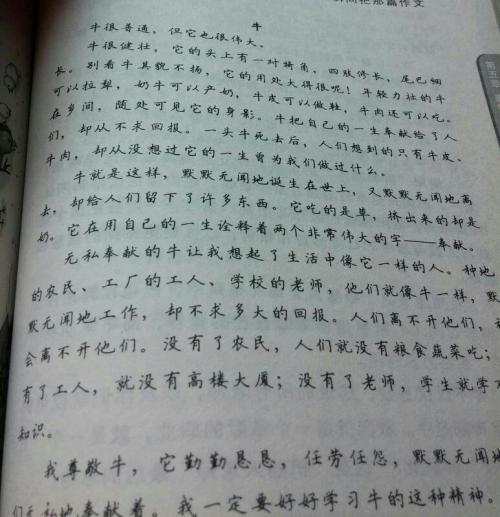 那篇作文
牛
牛很普通，但它也很伟大。
牛很健壮，它的头上有一对犄角，四肢修长，尾巴细
长。别看牛其貌不扬，它的用处大得很呢！年轻力壮的牛
可以拉犁，奶牛可以产奶，牛皮可以做鞋，牛肉还可以吃。
在乡间，随处可见它的身影。牛把自己的一生奉献给了人
们，却从不求回报。一头牛死去后，人们想到的只有牛皮、
牛肉，却从没想过它的一生曾为我们做过什么。
牛就是这样，默默无闻地诞生在世上，又默默无闻地离
去，却给人们留下了许多东西。它吃的是草，挤出来的却是
奶。它在用自己的一生诠释着两个非常伟大的字——奉献。
无私奉献的牛让我想起了生活中像它一样的人。种地
的农民、工厂的工人、学校的老师，他们就像牛一样，默
默无闻地工作，却不求多大的回报。人们离不开他们，
会离不开他们。没有了农民，人们就没有粮食蔬菜吃；
有了工人，就没有高楼大厦；没有了老师，学生就学
知识。
我尊敬牛，它勤勤恳恳，任劳任怨，默默无闻
们无私地奉献着。我一定要好好学习牛的这种精神。